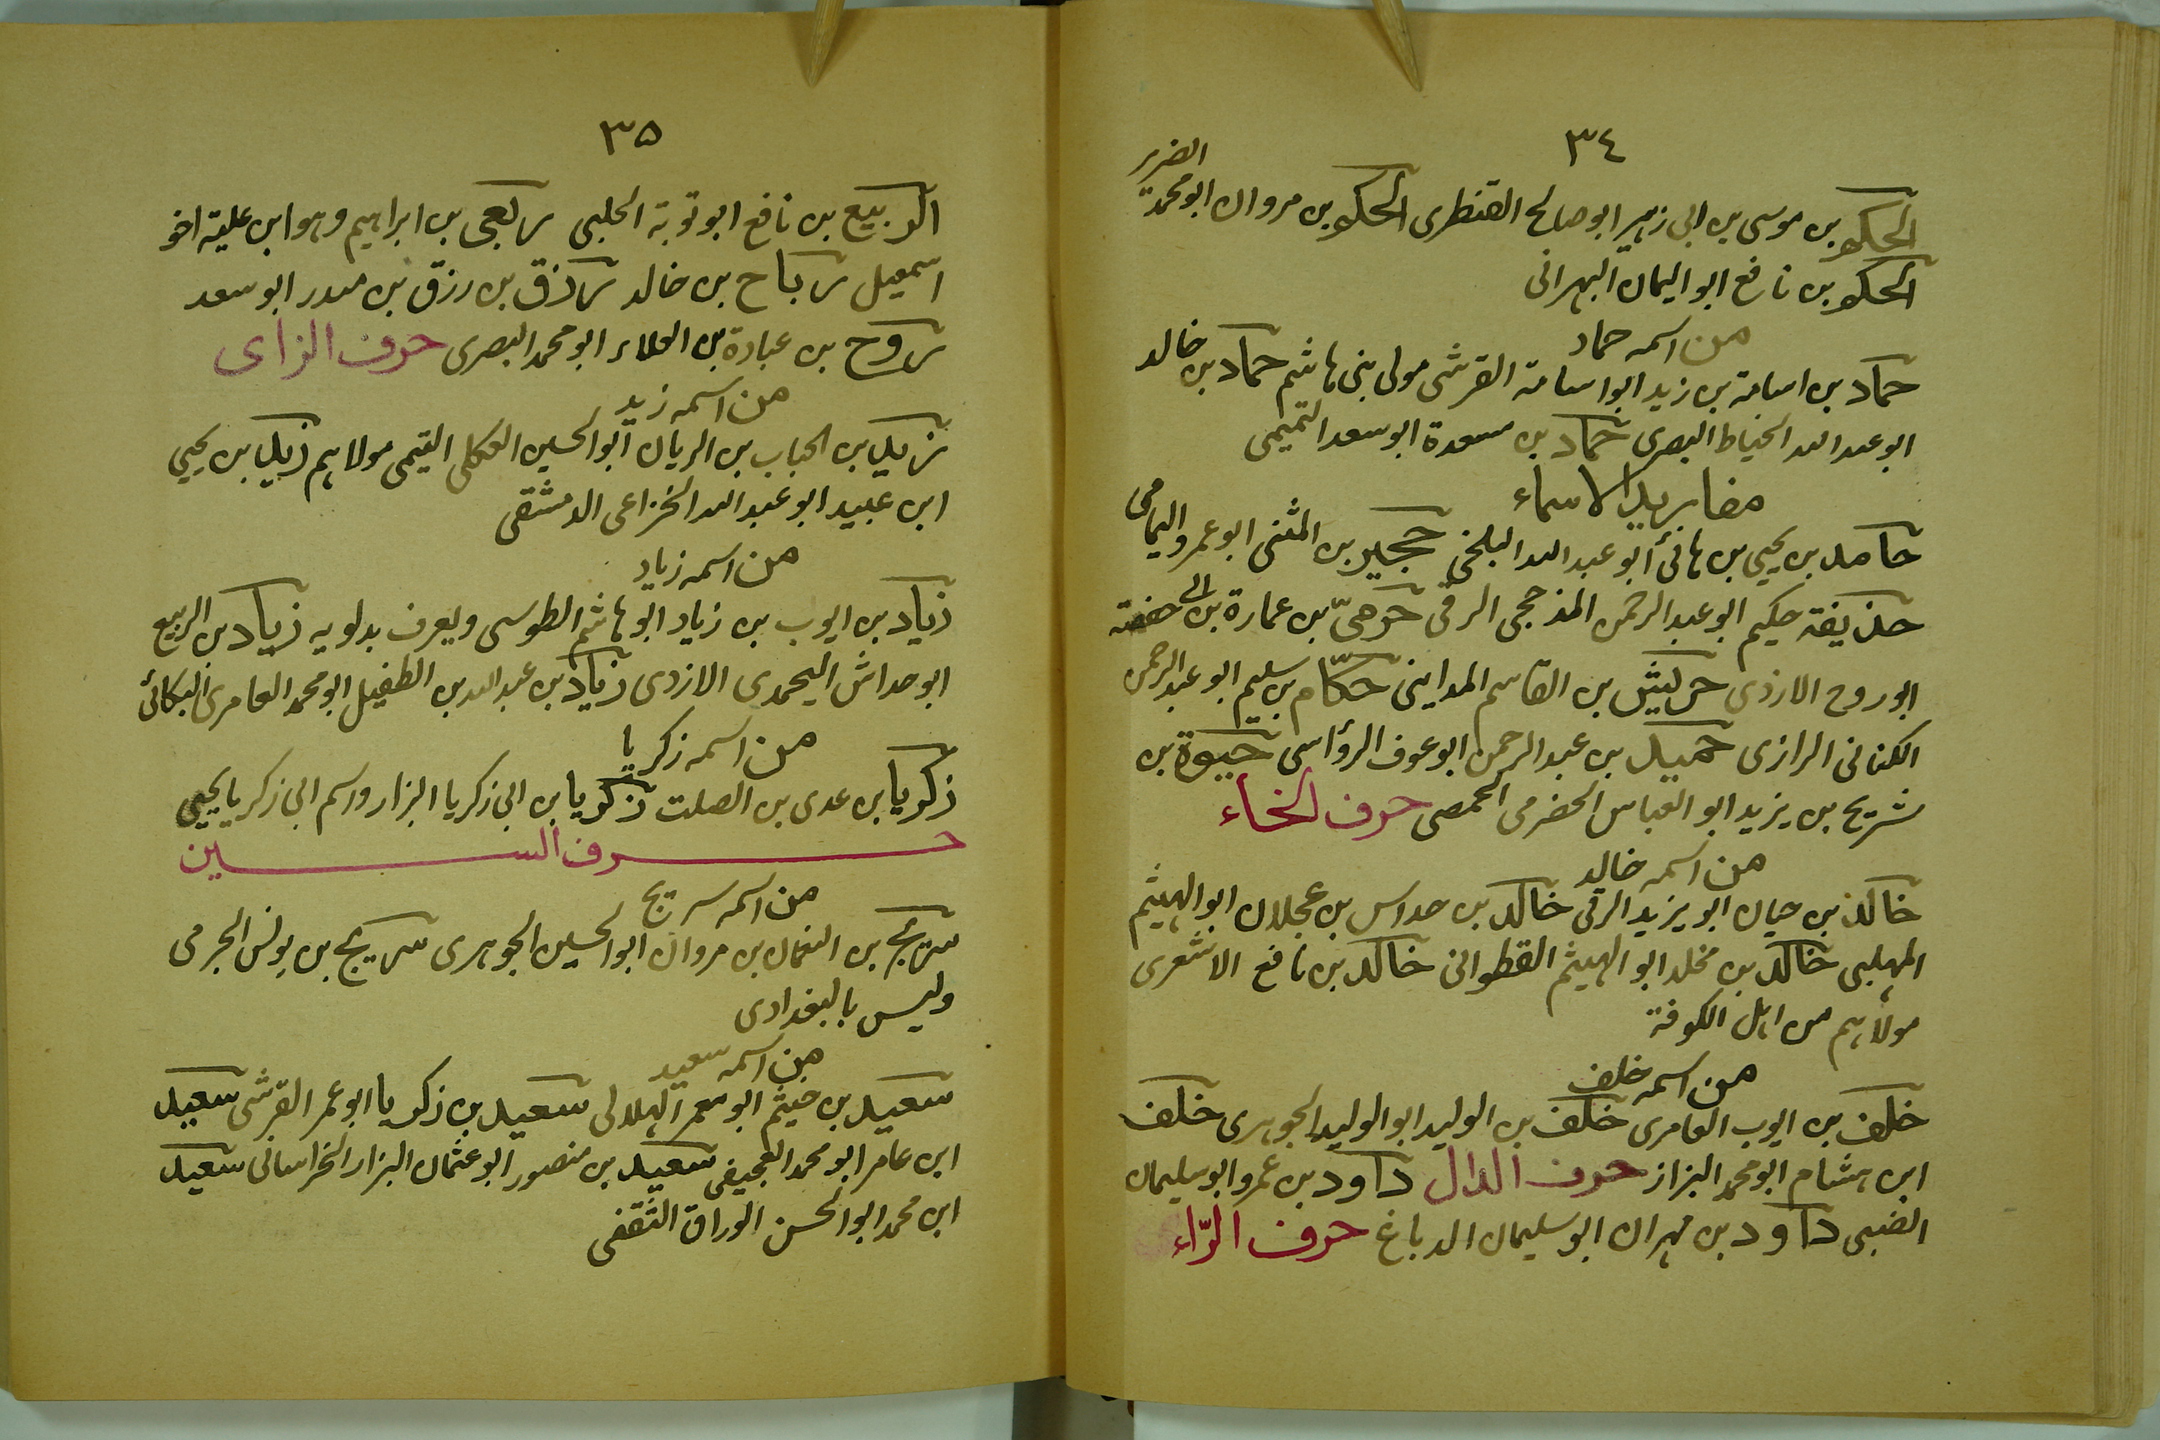 ٣٤
الضرير
الحكم بن موسى بن ابى زهير ابو صالح القنطرى الحكم بن مروان ابو محمد
الحكم بن نافع ابو اليمان البهرانى
من اسمه حماد
حماد بن اسامة بن زيد ابو اسامة القرشى مولى بنى هاشم حماد بن خالد
ابو عبد الله الخياط البصرى حماد بن مسعدة ابو سعد التميمى
مفاريد الاسماء
حامد بن يحيى بن هانئ ابو عبد الله البلخى حجير بن المثنى ابو عمرو اليمامى
حذيفة حكيم ابو عبد الرحمن المذحجى الرقى حرمىّ بن عمارة بن ابى حفصة
ابو روح الازدى حريش بن القاسم المداينى حكّام بن سليم ابو عبد الرحمن
الكنانى الرازى حميد بن عبد الرحمن ابو عوف الرؤاسى حيوة بن
شريح بن يزيد ابو العباس الحضرمى الحمصى حرف الخاء
من اسمه خالد
خالد بن حيان ابو يزيد الرقى خالد بن حداس بن عجلان ابو الهيثم
المهلبى خالد بن مخلد ابو الهيثم القطوانى خالد بن نافع الاشعرى
مولاهم من اهل الكوفة
من اسمه خلف
خلف بن ايوب العامرى خلف بن الوليد ابو الوليد الجوهرى خلف
ابن هشام ابو محمد البزاز حرف الدال داود بن عمرو ابو سليمان
الضبى داود بن مهران ابو سليمان الدباغ حرف الرّاء
٣٥
الربيع بن نافع ابو توبة الحلبى ربعى بن ابراهيم وهو ابن علية اخو
اسمعيل رباح بن خالد رزق بن رزق بن مندر ابو سعد
روح بن عبادة بن العلاء ابو محمد البصرى حرف الزاى
من اسمه زيد
زيد بن الحباب بن الريان ابو الحسين العكلى التيمى مولاهم زيد بن يحيى
ابن عبيد ابو عبد الله الخزاعى الدمشقى
من اسمه زياد
زياد بن ايوب بن زياد ابو هاشم الطوسى ويعرف بدلويه زياد بن الربيع
ابو حداش اليحمدى الازدى زياد بن عبد الله بن الطفيل ابو محمد العامرى البكائى
من اسمه زكريا
زكريا بن عدى بن الصلت زكريا بن ابى زكريا البزار واسم ابى زكريا يحيى
حرف السين
من اسمه سريج
سريج بن النعمان بن مروان ابو الحسين الجوهرى سريج بن يونس الجرمى
وليس بالبغدادى
من اسمه سعيد
سعيد بن خيثم ابو معمر الهلالى سعيد بن زكريا ابو عمر القرشى سعيد
ابن عامر ابو محمد العجيفى سعيد بن منصور ابو عثمان البزار الخراسانى سعيد
ابن محمد ابو الحسن الوراق الثقفى